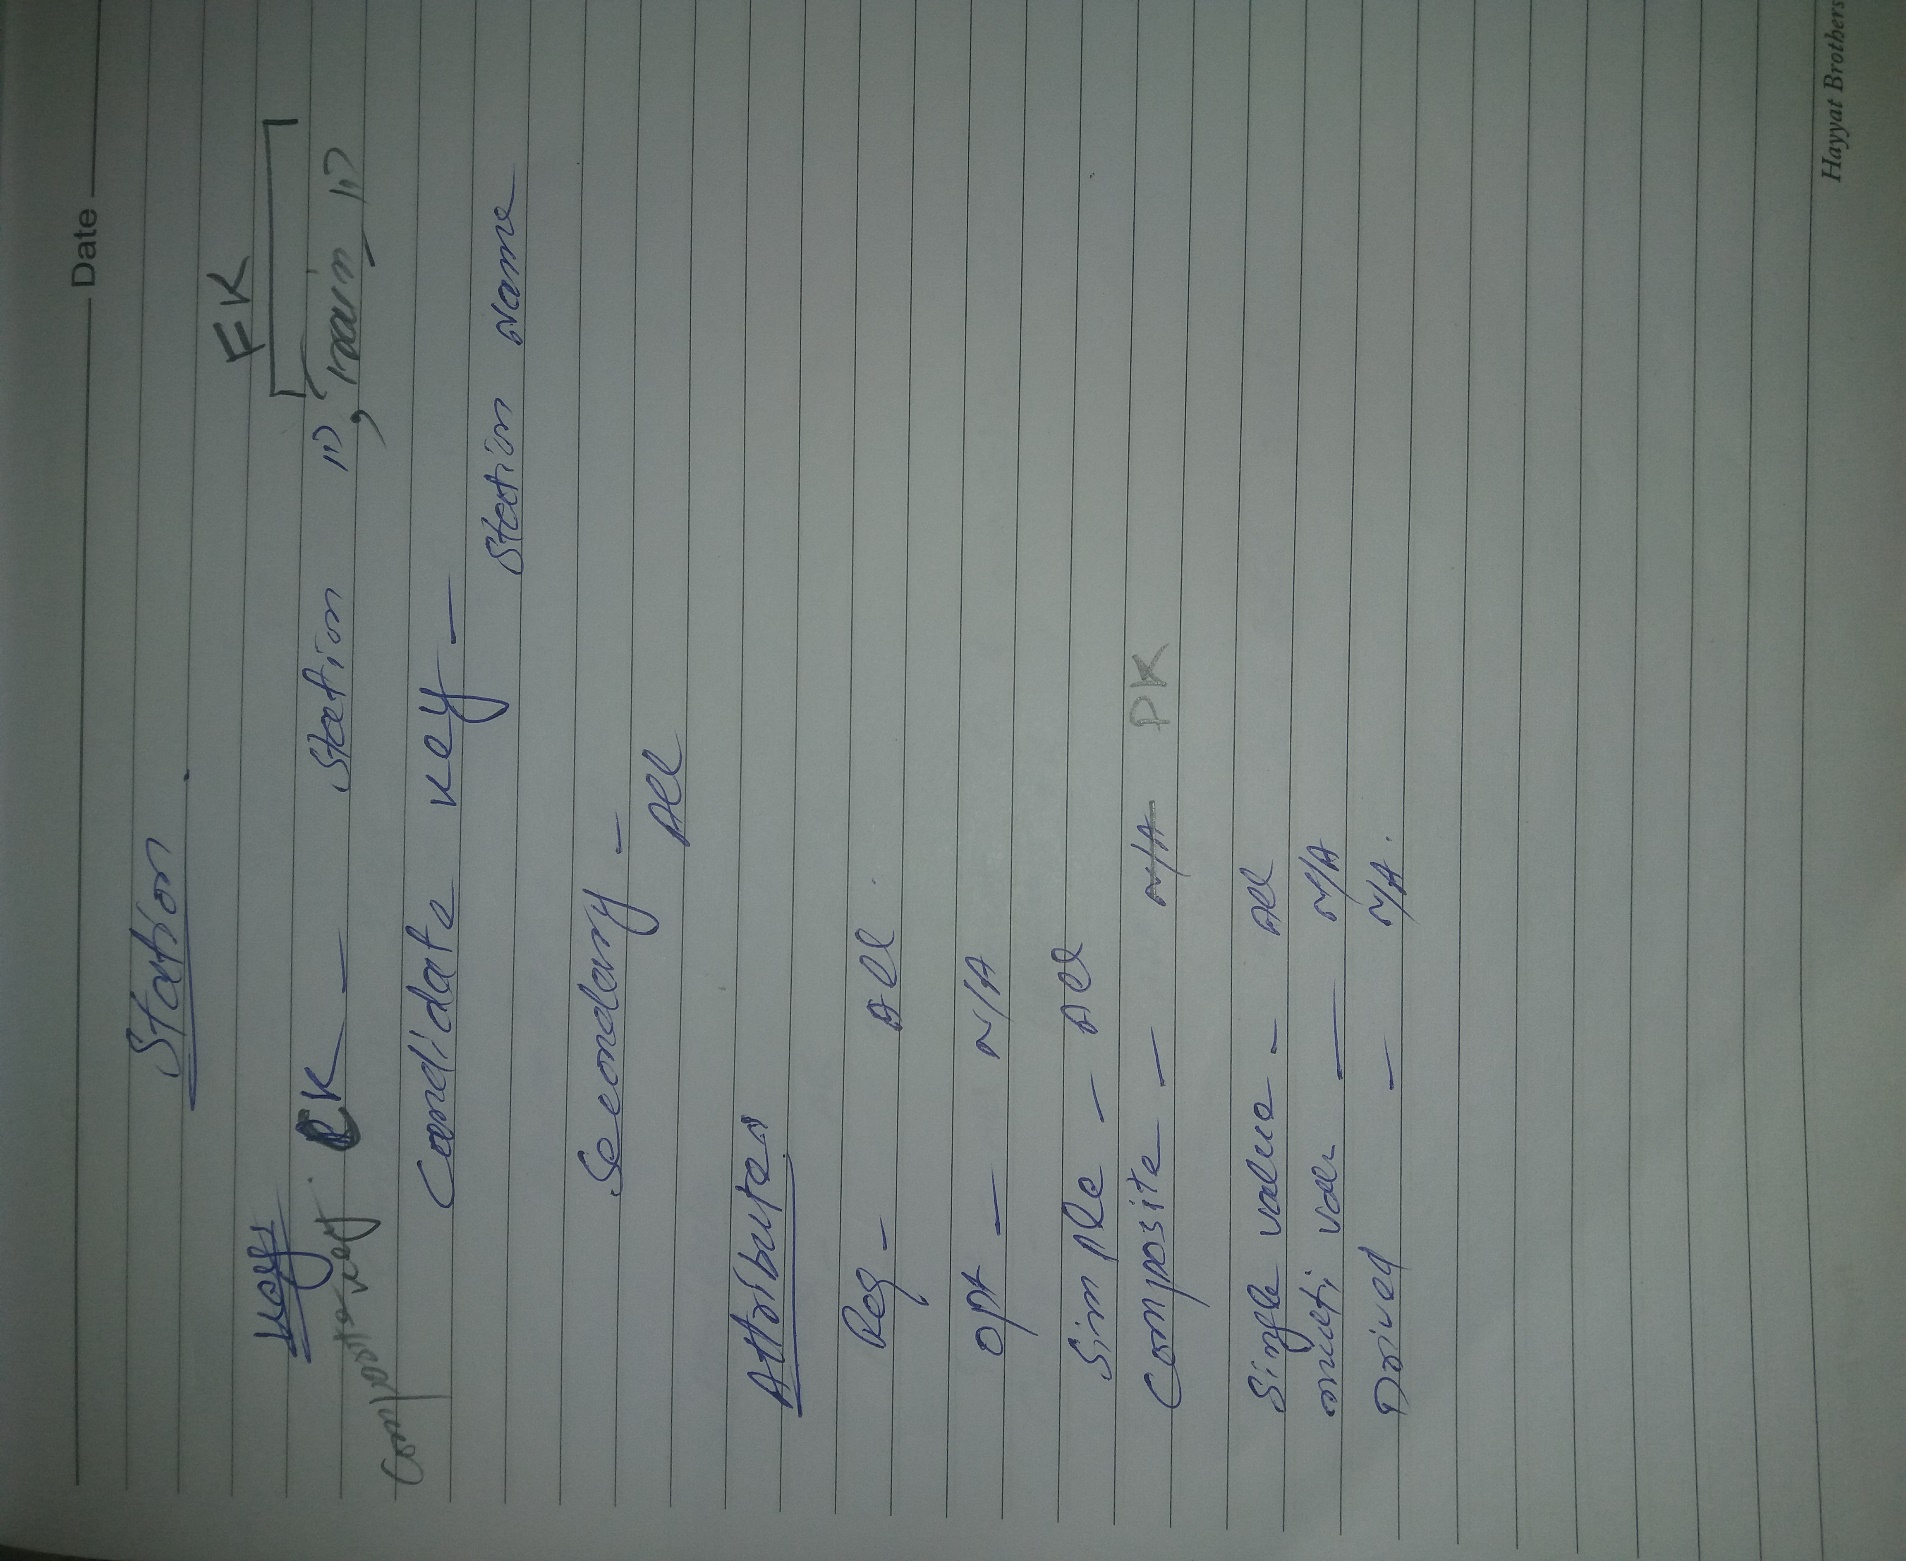 Date
Station
Keys
FK
Composite key CK — Station ID, Train_ID
Candidate key —
Station Name
Secondary —
All
Attributes
Req — All
Opt — N/A
Simple — All
Composite — N/A PK
Single value — All
multi val — N/A
Drived — N/A.
Hayyat Brothers